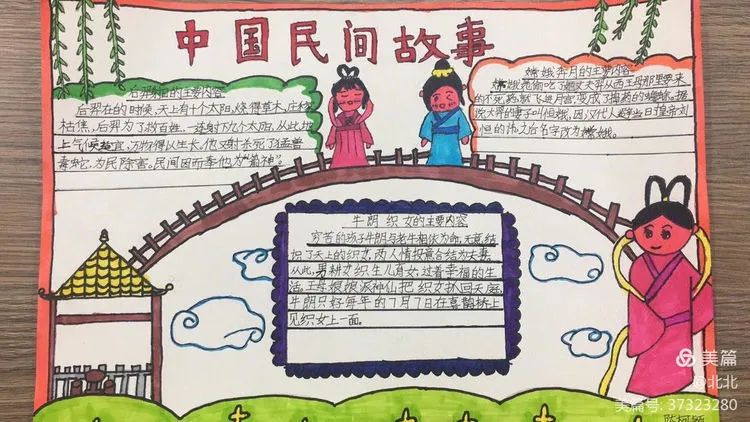 中国民间故事
后羿射日的主要内容
后羿在的时候,天上有十个太阳,烧得草木,庄稼
枯焦,后羿为了救百姓,一连射下九个太阳,从此地
上气候适宜,万物得以生长。他又射杀死了猛兽
毒蛇,为民除害。民间因而奉他为“箭神”。
嫦娥奔月的主要内容
嫦娥偷吃了丈夫羿从西王母那里要来
的不死药就飞进月宫,变成了捣药的蟾蜍。据
说大羿的妻子叫恒娥,因汉代人避当日皇帝刘
恒的讳,之后名字改为嫦娥。
牛朗织女的主要内容
穷苦的孩子牛朗与老牛相依为命,无意结
识了天上的织女,两人情投意合结为夫妻,
从此,男耕女织生儿育女,过着幸福的生
活。王母娘娘派神仙把织女抓回天庭,
牛朗只好每年的7月7日在喜鹊桥上
见织女上一面。
美篇
@北北
美篇号:37323280